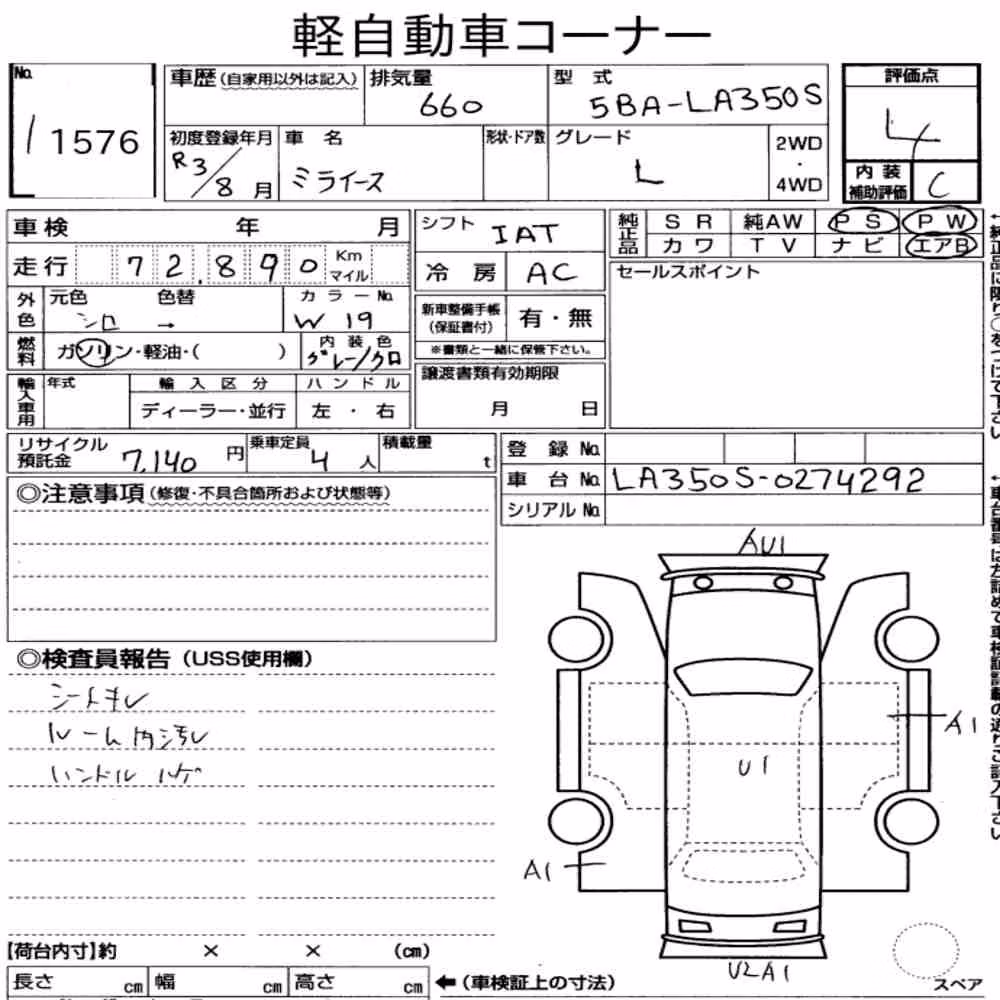 軽自動車コーナー
No. 11576
車歴(自家用以外は記入)
排気量 660
型式 5BA-LA350S
評価点 4
初度登録年月 R3/8月
車名 ミライース
形状・ドア数
グレード L
2WD・4WD
内装補助評価 C
車検 年 月
シフト IAT
純正品 SR 純AW PS PW
カワ TV ナビ エアB
走行 72,890 Km マイル
冷房 AC
セールスポイント
外色 元色 シロ 色替 → カラーNo. W19
新車整備手帳(保証書付) 有・無
※書類と一緒に保管下さい。
燃料 ガソリン・軽油・( )
内装色 グレー/クロ
譲渡書類有効期限
月 日
輸入車用 年式 輸入区分 ハンドル
ディーラー・並行 左・右
リサイクル預託金 7,140円
乗車定員 4人
積載量 t
登録No.
車台No. LA350S-0274292
シリアルNo.
◎注意事項(修復・不具合箇所および状態等)
◎検査員報告(USS使用欄)
シートキレ
ルーム内汚レ
ハンドル ハゲ
AU1
A1
U1
A1
U2A1
スペア
【荷台内寸】約 × × (cm)
長さ cm 幅 cm 高さ cm
←(車検証上の寸法)
↑純正品に限り○をつけて下さい
↑車台番号は左詰めで車検証記載の通りご記入下さい